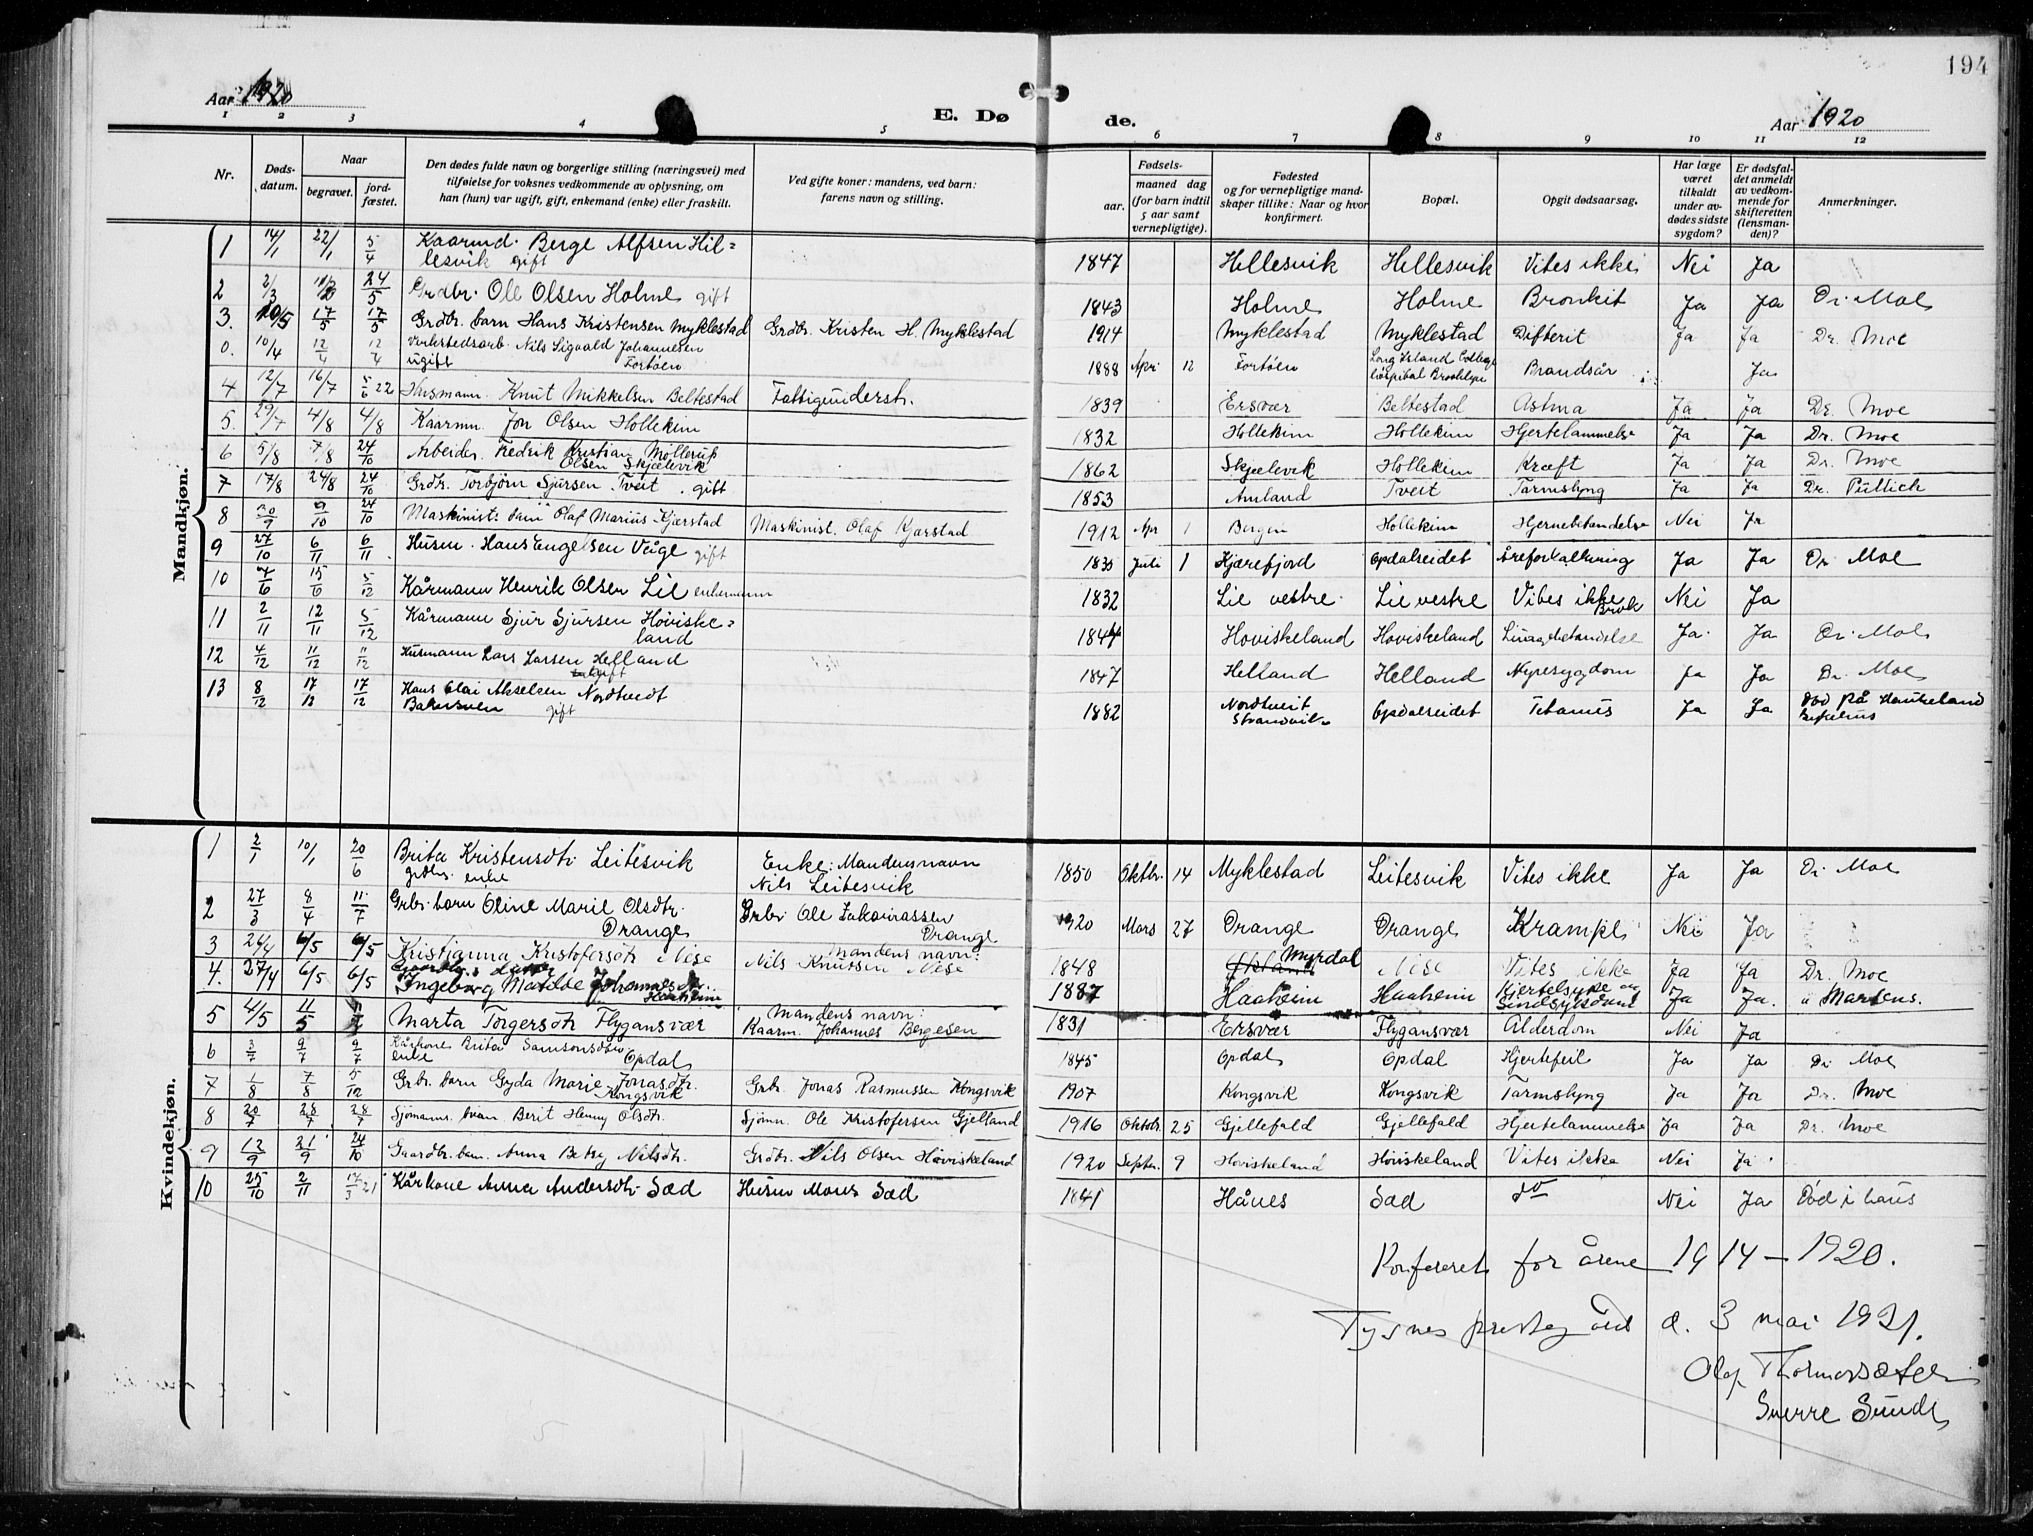 194
Aar 1920
E. Dø
de.
Aar 1920
1 2 3 4 5 6 7 8 9 10 11 12
Nr.
Døds-datum.
Naar
begravet.
jord-fæstet.
Den dødes fulde navn og borgerlige stilling (næringsvei) med
tilføielse for voksnes vedkommende av oplysning, om
han (hun) var ugift, gift, enkemand (enke) eller fraskilt.
Ved gifte koner: mandens, ved barn:
farens navn og stilling.
Fødsels-
aar. maaned dag
(for barn indtil
5 aar samt
vernepligtige).
Fødested
og for vernepligtige mand-
skaper tillike: Naar og hvor
konfirmert.
Bopæl.
Opgit dødsaarsag.
Har læge
været
tilkaldt
under av-
dødes sidste
sygdom?
Er dødsfal-
det anmeldt
av vedkom-
mende for
skifteretten
(lensman-
den)?
Anmerkninger.
Mandkjøn.
1 14/1 22/1 5/4 Kaarmd. Berge Alfsen Hil=
lesvik gift 1847 Hellesvik Hellesvik Vites ikke Nei Ja
2 2/3 24/5 Grdbr. Ole Olsen Holme gift 1843 Holme Holme Bronkit Ja Ja Dr. Moe
3. 10/5 17/5 17/5 Grdbr. barn Hans Kristensen Myklestad Grdbr. Kristen H. Myklestad 1914 Myklestad Myklestad Difterit Ja Ja Dr. Moe
0. 10/4 12/4 12/4 Verkstedsarb. Nils Sigvald Johannesen
ugift Fortøen 1888 Apri 12 Fortøen Long Island College
Hospital Brooklyn Brandsår Ja
4 12/7 16/7 5/6 22 Husmann Knut Mikkelsen Beltestad Fattigunderst. 1839 Ersvær Beltestad Astma Ja Ja Dr. Moe
5. 29/7 4/8 4/8 Kaarmn. Jon Olsen Hollekim 1832 Hollekim Hollekim Hjertelammelse Ja Ja Dr. Moe
6 5/8 7/8 24/10 Arbeider. Fredrik Kristian Møllerup
Olsen Skjælevik 1862 Skjælevik Hollekim Kræft Ja Ja Dr. Moe
7 17/8 24/8 24/10 Grdbr. Torbjørn Sjursen Tveit. gift 1853 Amland Tveit Tarmslyng Ja Ja Dr. Püllich
8 30/9 9/10 24/10 Maskinist: barn Olaf Marius Kjærstad Maskinist. Olaf Kjærstad 1912 Apr 1 Bergen Hollekim Hjernebetændelse Nei Ja
9 27/10 6/11 6/11 Husm. Hans Engelsen Våge gift 1830 Juli 1 Kjærefjord Opdalseidet Åreforkalkning Ja Ja Dr. Moe
10 7/6 15/6 5/12 Kårmann Henrik Olsen Lie enkemann 1832 Lie vestre Lie vestre Vites ikke
Brok Nei Ja
11 2/11 12/11 5/12 Kårmann Sjur Sjursen Høviske=
land 1844 Hoviskeland Hoviskeland Lungebetændelse Ja Ja Dr. Moe
12 4/12 11/12 11/12 Husmann Lars Larsen Helland
gift 1847 Helland Helland Nyresygdom Ja Ja Dr. Moe
13 8/12 17/12 17/12 Hans Olai Akselsen Nordtveit
gift 1882 Nordtveit
Strandvik Opdalseidet Tetanus Ja Ja Død på Haukeland
Kvindekjøn.
1 2/1 10/1 20/6 Brita Kristensdtr. Leitesvik
grdbr. enke Enke: Mandens navn
Nils Leitesvik 1850 Oktbr. 14 Myklestad Leitesvik Vites ikke Ja Ja Dr. Moe
2 27/3 8/4 11/7 Grbr. barn Oline Marie Olsdtr.
Drange Grbr. Ole Zakariassen
Drange 1920 Mars 27 Drange Drange Krampe Nei Ja
3 24/4 6/5 6/5 Kristianna Kristofersdtr. Nese mandens navn:
Nils Knutsen Nese 1848 Myrdal Nese Vites ikke Ja Ja Dr. Moe
4. 27/4 6/5 6/5 Ingeborg Matilde Johannesdtr.
Haaheim 1887 Haaheim Haaheim Kjertelsyke og
Sindsykdom Ja Ja. Martens.
5 4/5 11/5 Marta Torgersdtr. Flygansvær Mandens navn:
Kaarm. Johannes Bergesen 1831 Ersvær Flygansvær Alderdom Nei Ja
6 3/7 9/7 9/7 Kårkone Brita Samsonsdtr.
enke Opdal 1845 Opdal Opdal Hjertefeil Ja Ja Dr. Moe
7 1/8 7/8 5/12 Grbr. barn Gyda Marie Jonasdtr.
Kongsvik Grbr. Jonas Rasmussen Kongsvik 1907 Kongsvik Kongsvik Tarmslyng Ja Ja Dr. Moe
8 20/7 28/7 28/7 Sjømanns. barn Berit Henny Olsdtr. Sjømn. Ole Kristofersen Gjelland 1916 Oktobr. 25 Gjellefald Gjellefald Hjertelammelse Ja Ja Dr. Moe
9 12/9 21/9 24/10 Gaardbr. barn. Anna Betsy Nilsdtr. Grdbr. Nils Olsen Høviskeland 1920 Septbr. 9 Hoviskeland Høviskeland Vites ikke Nei Ja
10 25/10 2/11 17/3 21 Kårkone Anna Andersdtr. Sæd Husm Mons Sæd 1841 Hånes Sæd do Nei Ja Død i baas
Konfereret for årene 1914 – 1920.
Tysnes prestegård d. 3 mai 1921.
Olaf Thormodsæter
Sverre Sunde